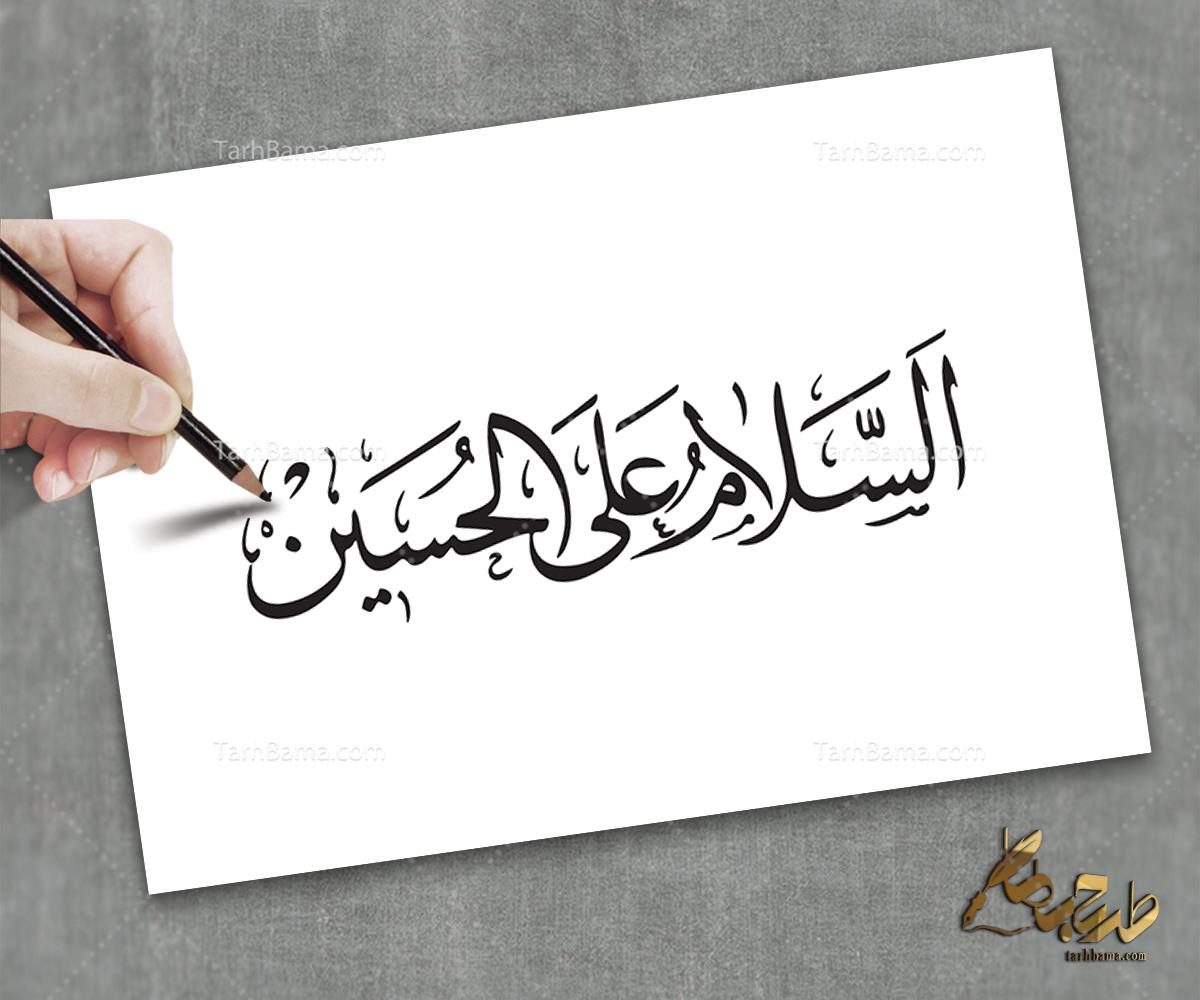 TarhBama.com TarhBama.com
اَلسَّلامُ عَلَی الحُسَین
TarhBama.com TarhBama.com
TarhBama.com TarhBama.com
طرح با ما
tarhbama.com